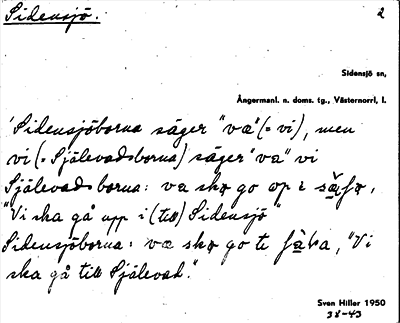 Sidensjö. 2
Sidensjö sn,
Ångermanl. n. doms. tg., Västernorrl, l.
'Sidensjöborna säger "væ" (= vi), men
vi (= Själevadsborna) säger "va" vi
Själevadsborna: va skɷ go op i
"Vi ska gå upp i (till) Sidensjö"
Sidensjöborna: væ skɷ go te "Vi
ska gå till Själevad."
Sven Hiller 1950
38-43